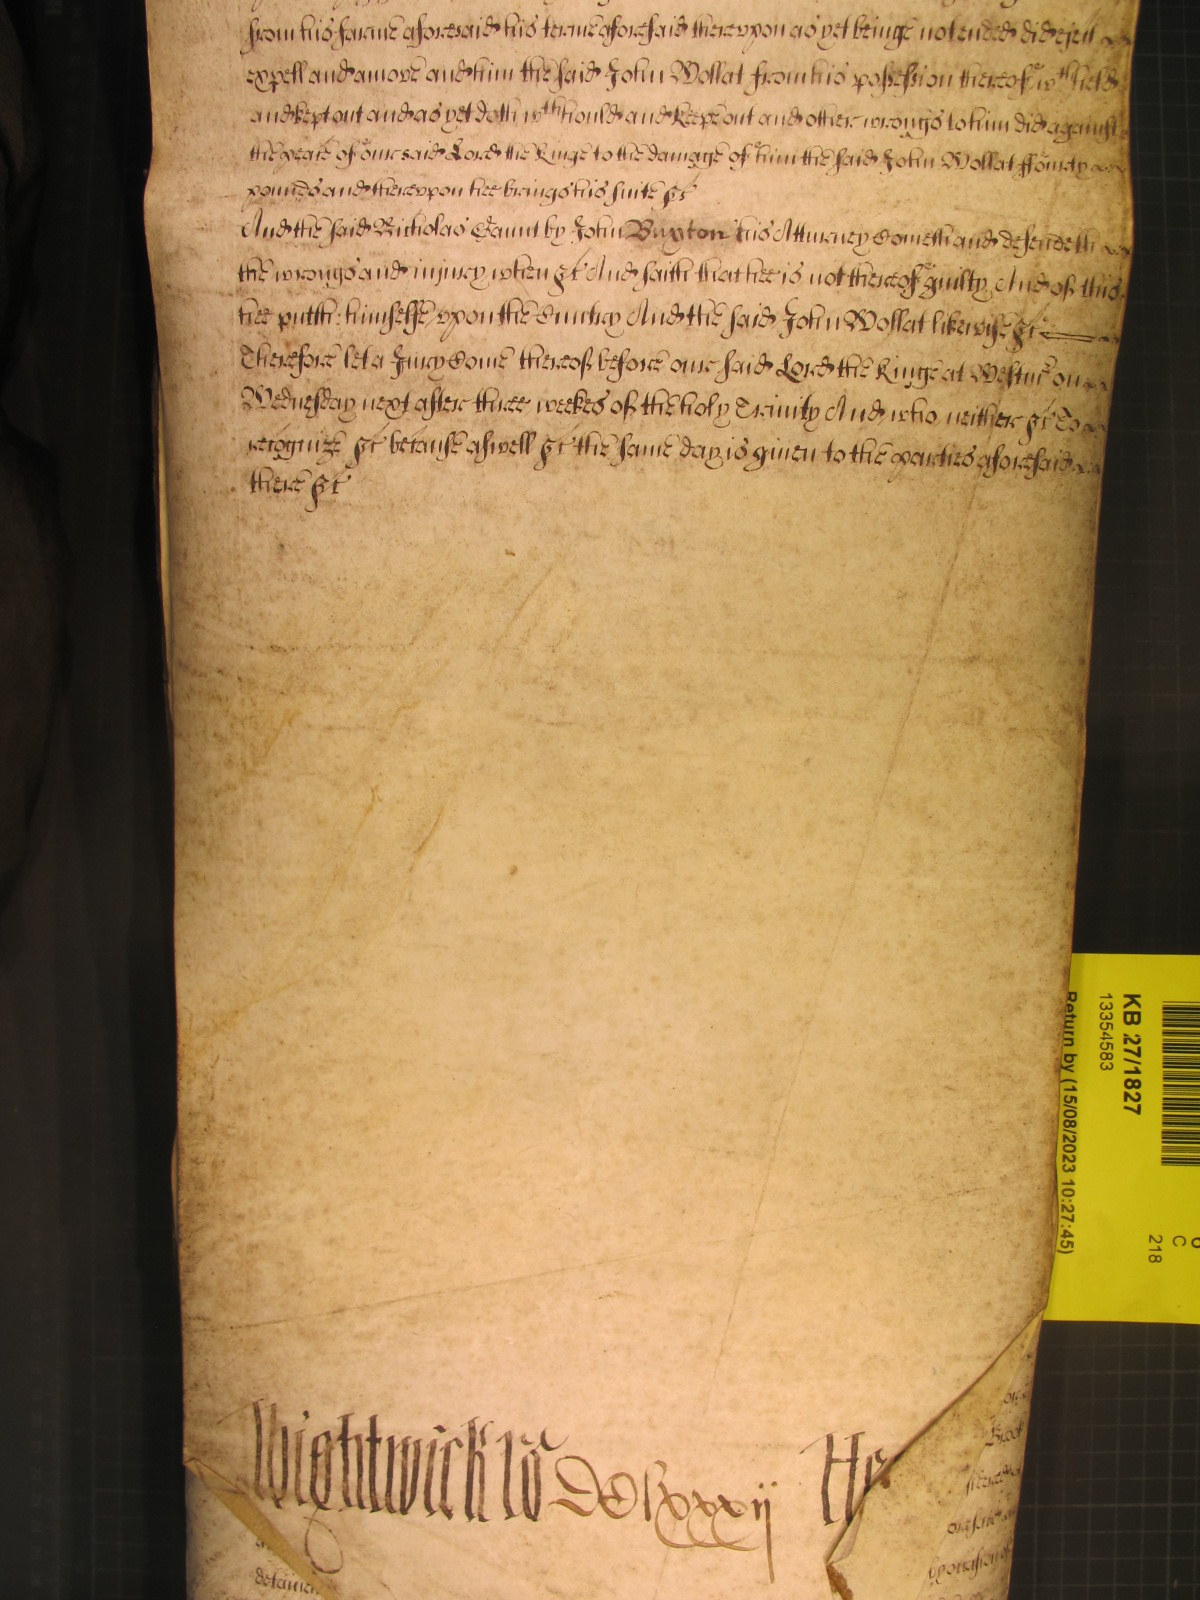 from his farme aforesaid his terme aforesaid therevpon as yet beinge not ended did eject
expell and amove and him the said John Wollat from his possession thereof wth held
and kept out and as yet doth wth hould and keepe out and other wrongs to him did against
the peace of our said Lord the Kinge to the damage of him the said John Wollat ffourty
pounds and therevpon hee brings his suite &c
And the said Nicholas Gaunt by John Buxton his Atturney Cometh and defendeth
the wrongs and injury when &c And saith that hee is not thereof guilty And of this
hee putth himselfe vpon the Cuntry And the said John Wollat likewise &c
Therefore let a Jury Come thereof before our said Lord the Kinge at Westmr on
Wednesday next after three weekes of the holy Trinity And who neither &c To
recognize &c because aswell &c the same day is given to the parties aforesaid
there &c
Wightwick Ro DClxxxij He
detainen
KB 27/1827
13354583
Return by (15/08/2023 10:27:45)
C
218